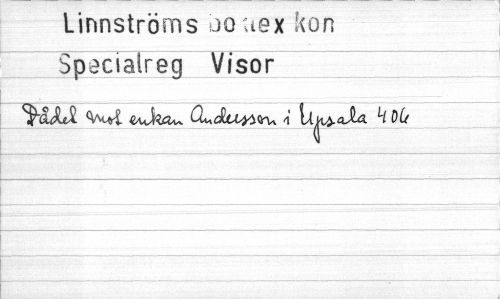 Linnströms boklexikon
Specialreg Visor
Dådet mot enkan Andersson i Upsala 406